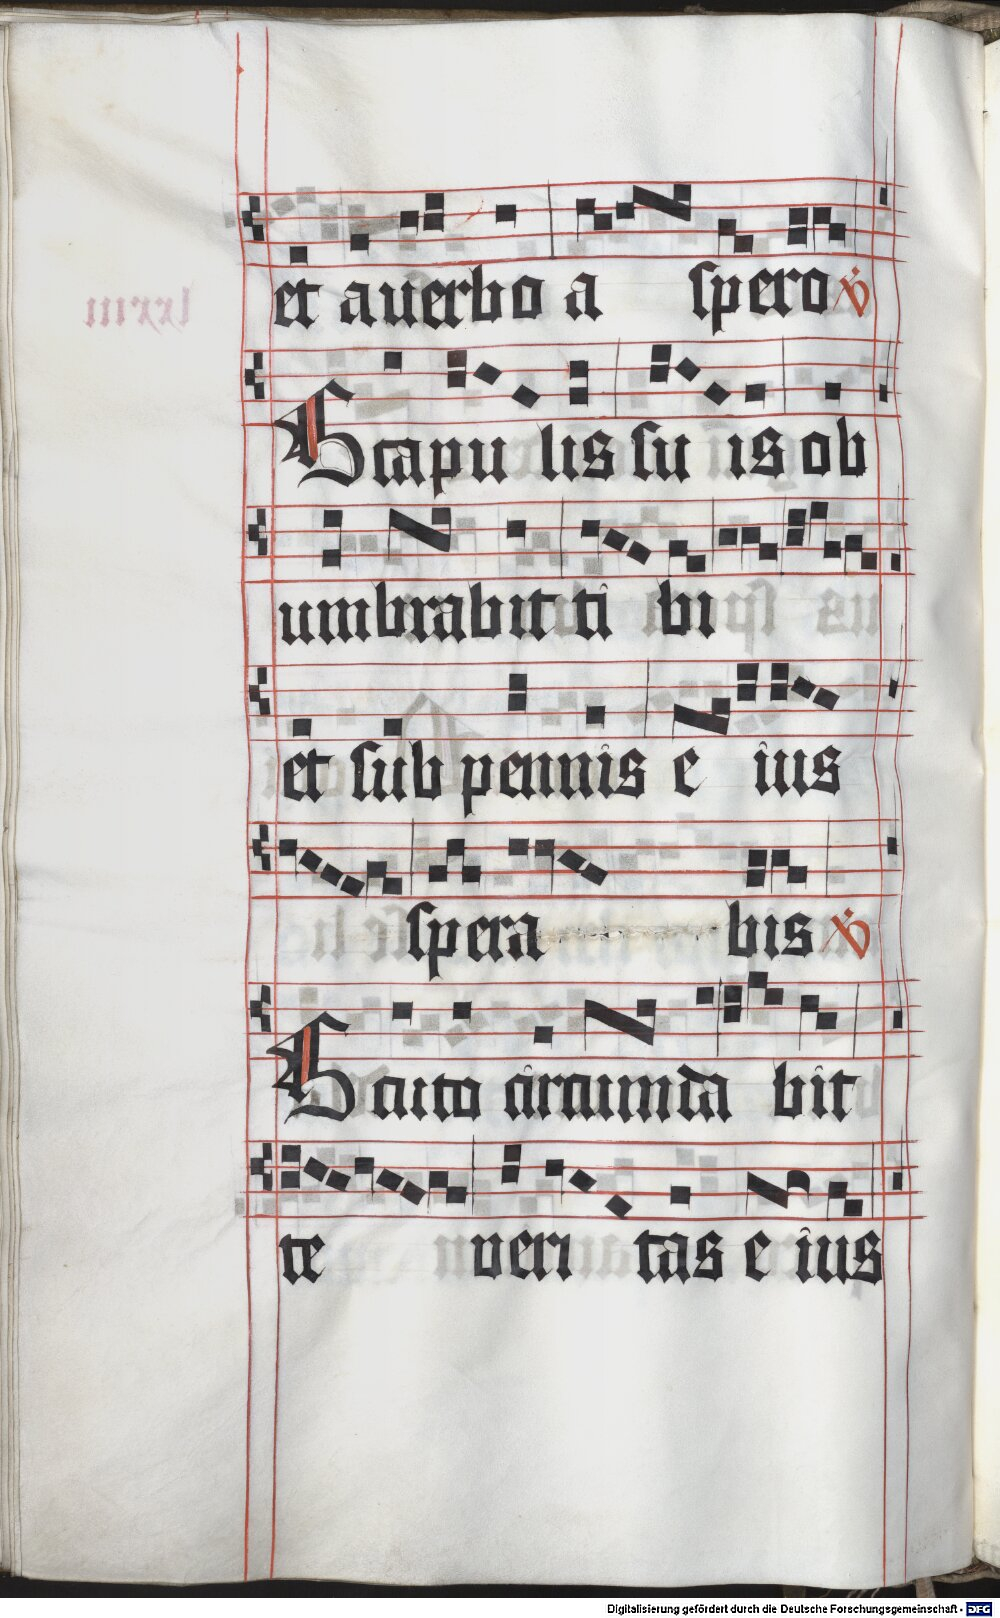 et a uerbo a spero ℣
Scapulis suis ob
umbrabit tibi
et sub pennis eius
sperabis ℣
Scuto circumda bit
te veritas eius
Digitalisierung gefördert durch die Deutsche Forschungsgemeinschaft - DFG